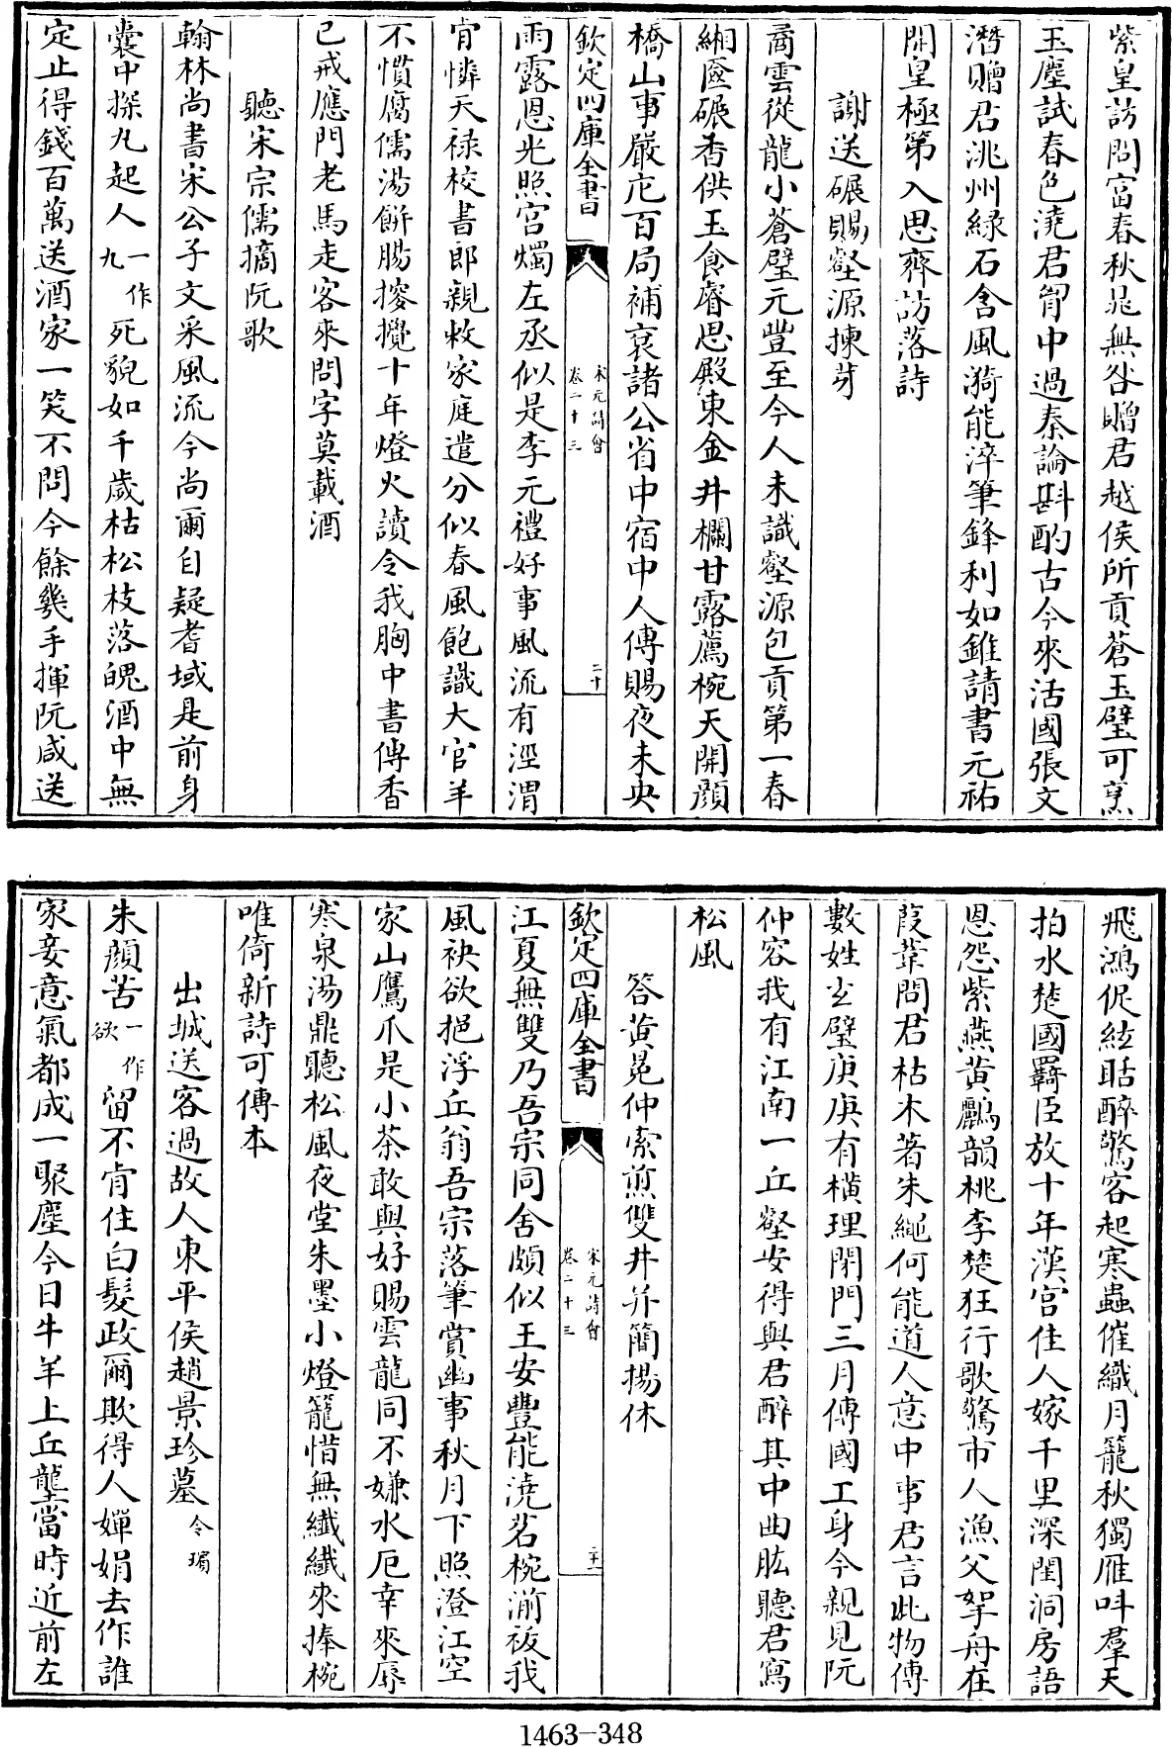 紫皇訪問富春秋晁無咎贈君越侯所貢蒼玉璧可烹
玉塵試春色澆君胷中過秦論斟酌古今來活國張文
潛贈君洮州緑石含風漪能淬筆鋒利如錐請書元祐
開皇極第入思齊訪落詩
謝送碾賜壑源揀芽
矞雲從龍小蒼璧元豐至今人未識壑源包貢第一春
緗匳碾香供玉食睿思殿東金井欄甘露薦椀天開顔
橋山事嚴庀百局補衮諸公省中宿中人傳賜夜未央
欽定四庫全書 宋元詩會 卷二十三 二十
雨露恩光照宫燭左丞似是李元禮好事風流有涇渭
肯憐天禄校書郎親敕家庭遣分似春風飽識大官羊
不慣腐儒湯餅腸搜攪十年燈火讀令我胸中書傳香
已戒應門老馬走客來問字莫載酒
聽宋宗儒摘阮歌
翰林尚書宋公子文采風流今尚爾自疑耆域是前身
囊中探丸起人一作九死貌如千歲枯松枝落魄酒中無
定止得錢百萬送酒家一笑不問今餘幾手揮阮咸送
飛鴻促絃聒醉驚客起寒蟲催織月籠秋獨雁叫羣天
拍水楚國羇臣放十年漢宫佳人嫁千里深閨洞房語
恩怨紫燕黄鸝韻桃李楚狂行歌驚市人漁父挐舟在
葭葦問君枯木著朱繩何能道人意中事君言此物傳
數姓玄璧庚庚有横理閉門三月傳國工身今親見阮
仲容我有江南一丘壑安得與君醉其中曲肱聽君寫
松風
答黄冕仲索煎雙井并簡揚休
江夏無雙乃吾宗同舍頗似王安豐能澆茗椀湔祓我
風袂欲挹浮丘翁吾宗落筆賞幽事秋月下照澄江空
家山鷹爪是小茶敢與好賜雲龍同不嫌水厄幸來辱
寒泉湯鼎聽松風夜堂朱墨小燈籠惜無纖纖來捧椀
唯倚新詩可傳本
欽定四庫全書 宋元詩會 卷二十三 二十一
出城送客過故人東平侯趙景珍墓令瓆
朱顔苦一作欲留不肯住白髮政爾欺得人嬋娟去作誰
家妾意氣都成一聚塵今日牛羊上丘壟當時近前左
1463-348